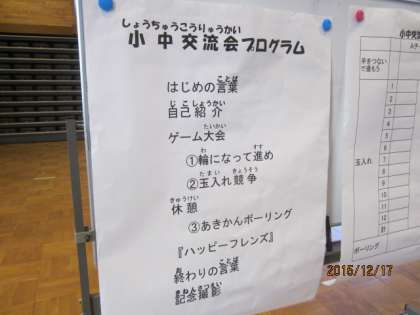 しょうちゅうこうりゅうかい
小中交流会プログラム
ことば
はじめの言葉
じこしょうかい
自己紹介
たいかい
ゲーム大会
わ すす
①輪になって進め
たまい きょうそう
②玉入れ競争
きゅうけい
休憩
③あきかんボーリング
『ハッピーフレンズ』
お ことば
終わりの言葉
きねんさつえい
記念撮影
小中交流
手をつないで進もう
1
2
3
4
5
6
7
8
9
10
11
12
計
玉入れ
ボーリング
2015/12/17